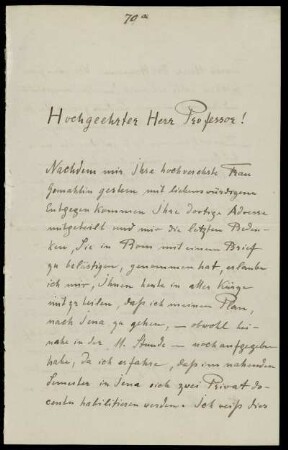 70a
Hochgeehrter Herr Professor!
Nachdem mir Ihre hochverehrte Frau
Gemahlin gestern mit liebenswürdigem
Entgegenkommen Ihre dortige Adresse
mitgeteilt und mir die letzten Beden-
ken, Sie in Rom mit einem Brief
zu belästigen, genommen hat, erlaube
ich mir, Ihnen heute in aller Kürze
mitzuteilen, daß ich meinen Plan,
nach Jena zu gehen, – obwohl bei-
nahe in der 11. Stunde – noch aufgegeben
habe, da ich erfahre, daß im nahenden
Semester in Jena sich zwei Privatdo-
centen habilitieren werden. Ich weiß dies